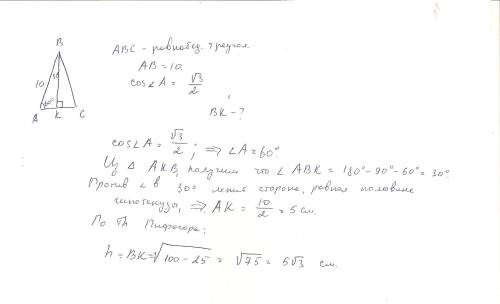 B
10
30
A
60°
K
C
ABC - равнобед. треугол.
AB = 10.
cos∠A = √3/2
BK - ?
cos∠A = √3/2 ; ⇒ ∠A = 60°.
Из △ AKB, получим что ∠ ABK = 180° - 90° - 60° = 30°
Против ∠ в 30° лежит сторона, равная половине
гипотенузы, ⇒ AK = 10/2 = 5 см.
По Th Пифагора:
h = BK = √100 - 25 = √75 = 5√3 см.